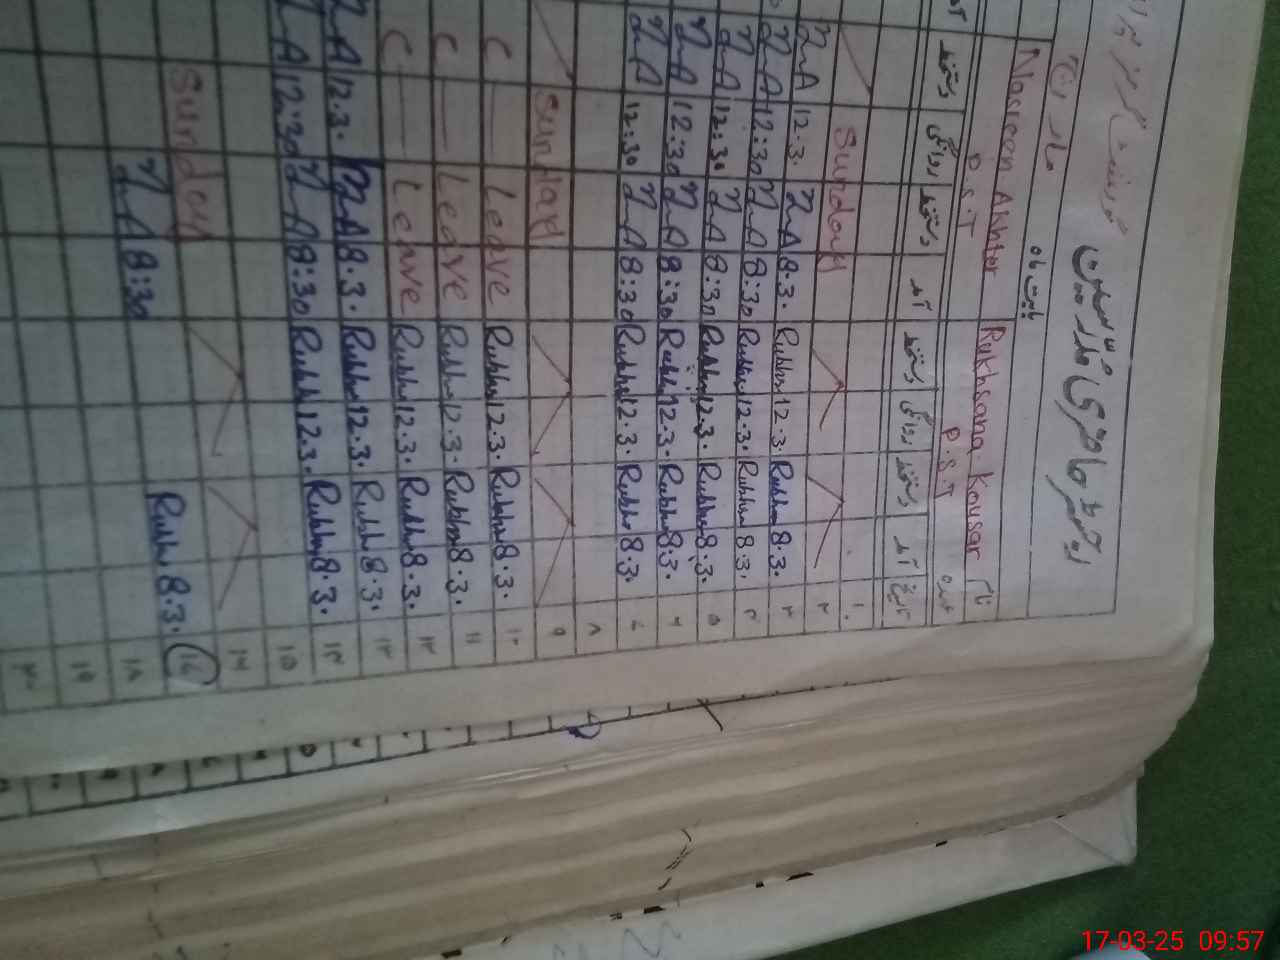 گورنمنٹ گرلز پرا
رجسٹر حاضری مدرسین
بابت ماہ مارچ
نام Rukhsana Kousar Nasreen Akhter
عہدہ P.S.T P.S.T
تاریخ آمد دستخط روانگی دستخط آمد دستخط روانگی دستخط
۱
۲ Sunday
۳ 8.3. Rukhs 12.3. Rukhs 8.3. NA 12.3. NA
۴ 8.3. Rukhs 12.3. Rukhs 8:30 NA 12:30 NA
۵ 8.3. Rukhs 12.3. Rukhs 8:30 NA 12:30 NA
۶ 8.3. Rukhs 12.3. Rukhs 8:30 NA 12:30 NA
۷ 8.3. Rukhs 12.3. Rukhs 8:30 NA 12:30 NA
۸
۹ Sunday
۱۰ 8.3. Rukhs 12.3. Rukhs Leave — C
۱۱ 8.3. Rukhs 12.3. Rukhs Leave — C
۱۲ 8.3. Rukhs 12.3. Rukhs Leave — C
۱۳ 8.3. Rukhs 12.3. Rukhs 8.3. NA 12.3. NA
۱۴ 8.3. Rukhs 12.3. Rukhs 8:30 NA 12:30 NA
۱۵
۱۶ Sunday
۱۷ 8.3. Rukhs 8:30 NA
۱۸
۱۹
۲۰
17-03-25 09:57